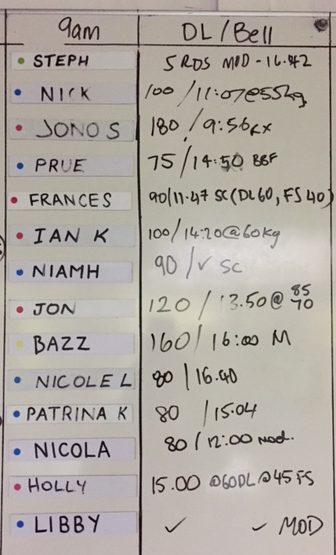 9am DL/Bell
STEPH 5 RDS MOD - 16.42
NICK 100/11:07@55kg
JONO S 180/9:56 RX
PRUE 75/14:50
FRANCES 90/11.47 SC(DL60, FS 40)
IAN K 100/14:20@60kg
NIAMH 90/✓ SC
JON 120/13.50@ 85 70
BAZZ 160/16:00 M
NICOLE L 80/16.40
PATRINA K 80/15.04
NICOLA 80/12:00 Mod.
HOLLY 15.00 @60DL@45FS
LIBBY ✓ ✓ MOD